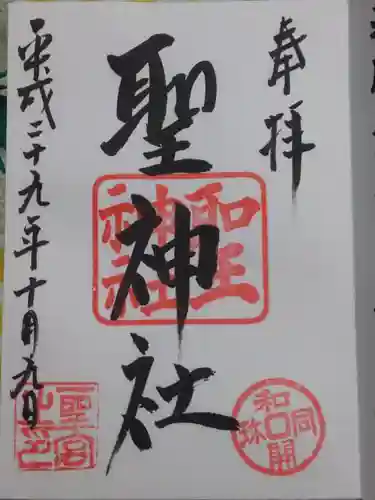 奉拝
聖神社
聖神社
平成二十九年十月九日
和同開珎
一聖宮